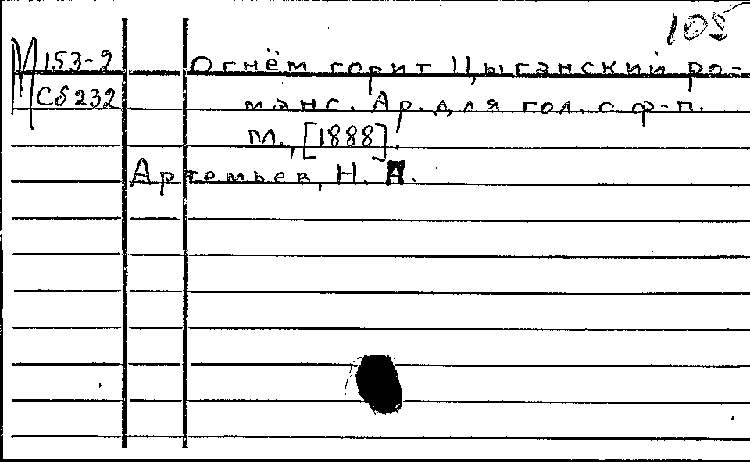 105
М 153-2 Огнём горит Цыганский ро-
Сб 232 манс. Ар. для гол. с ф-п.
М., [1888].
Артемьев, Н. А.